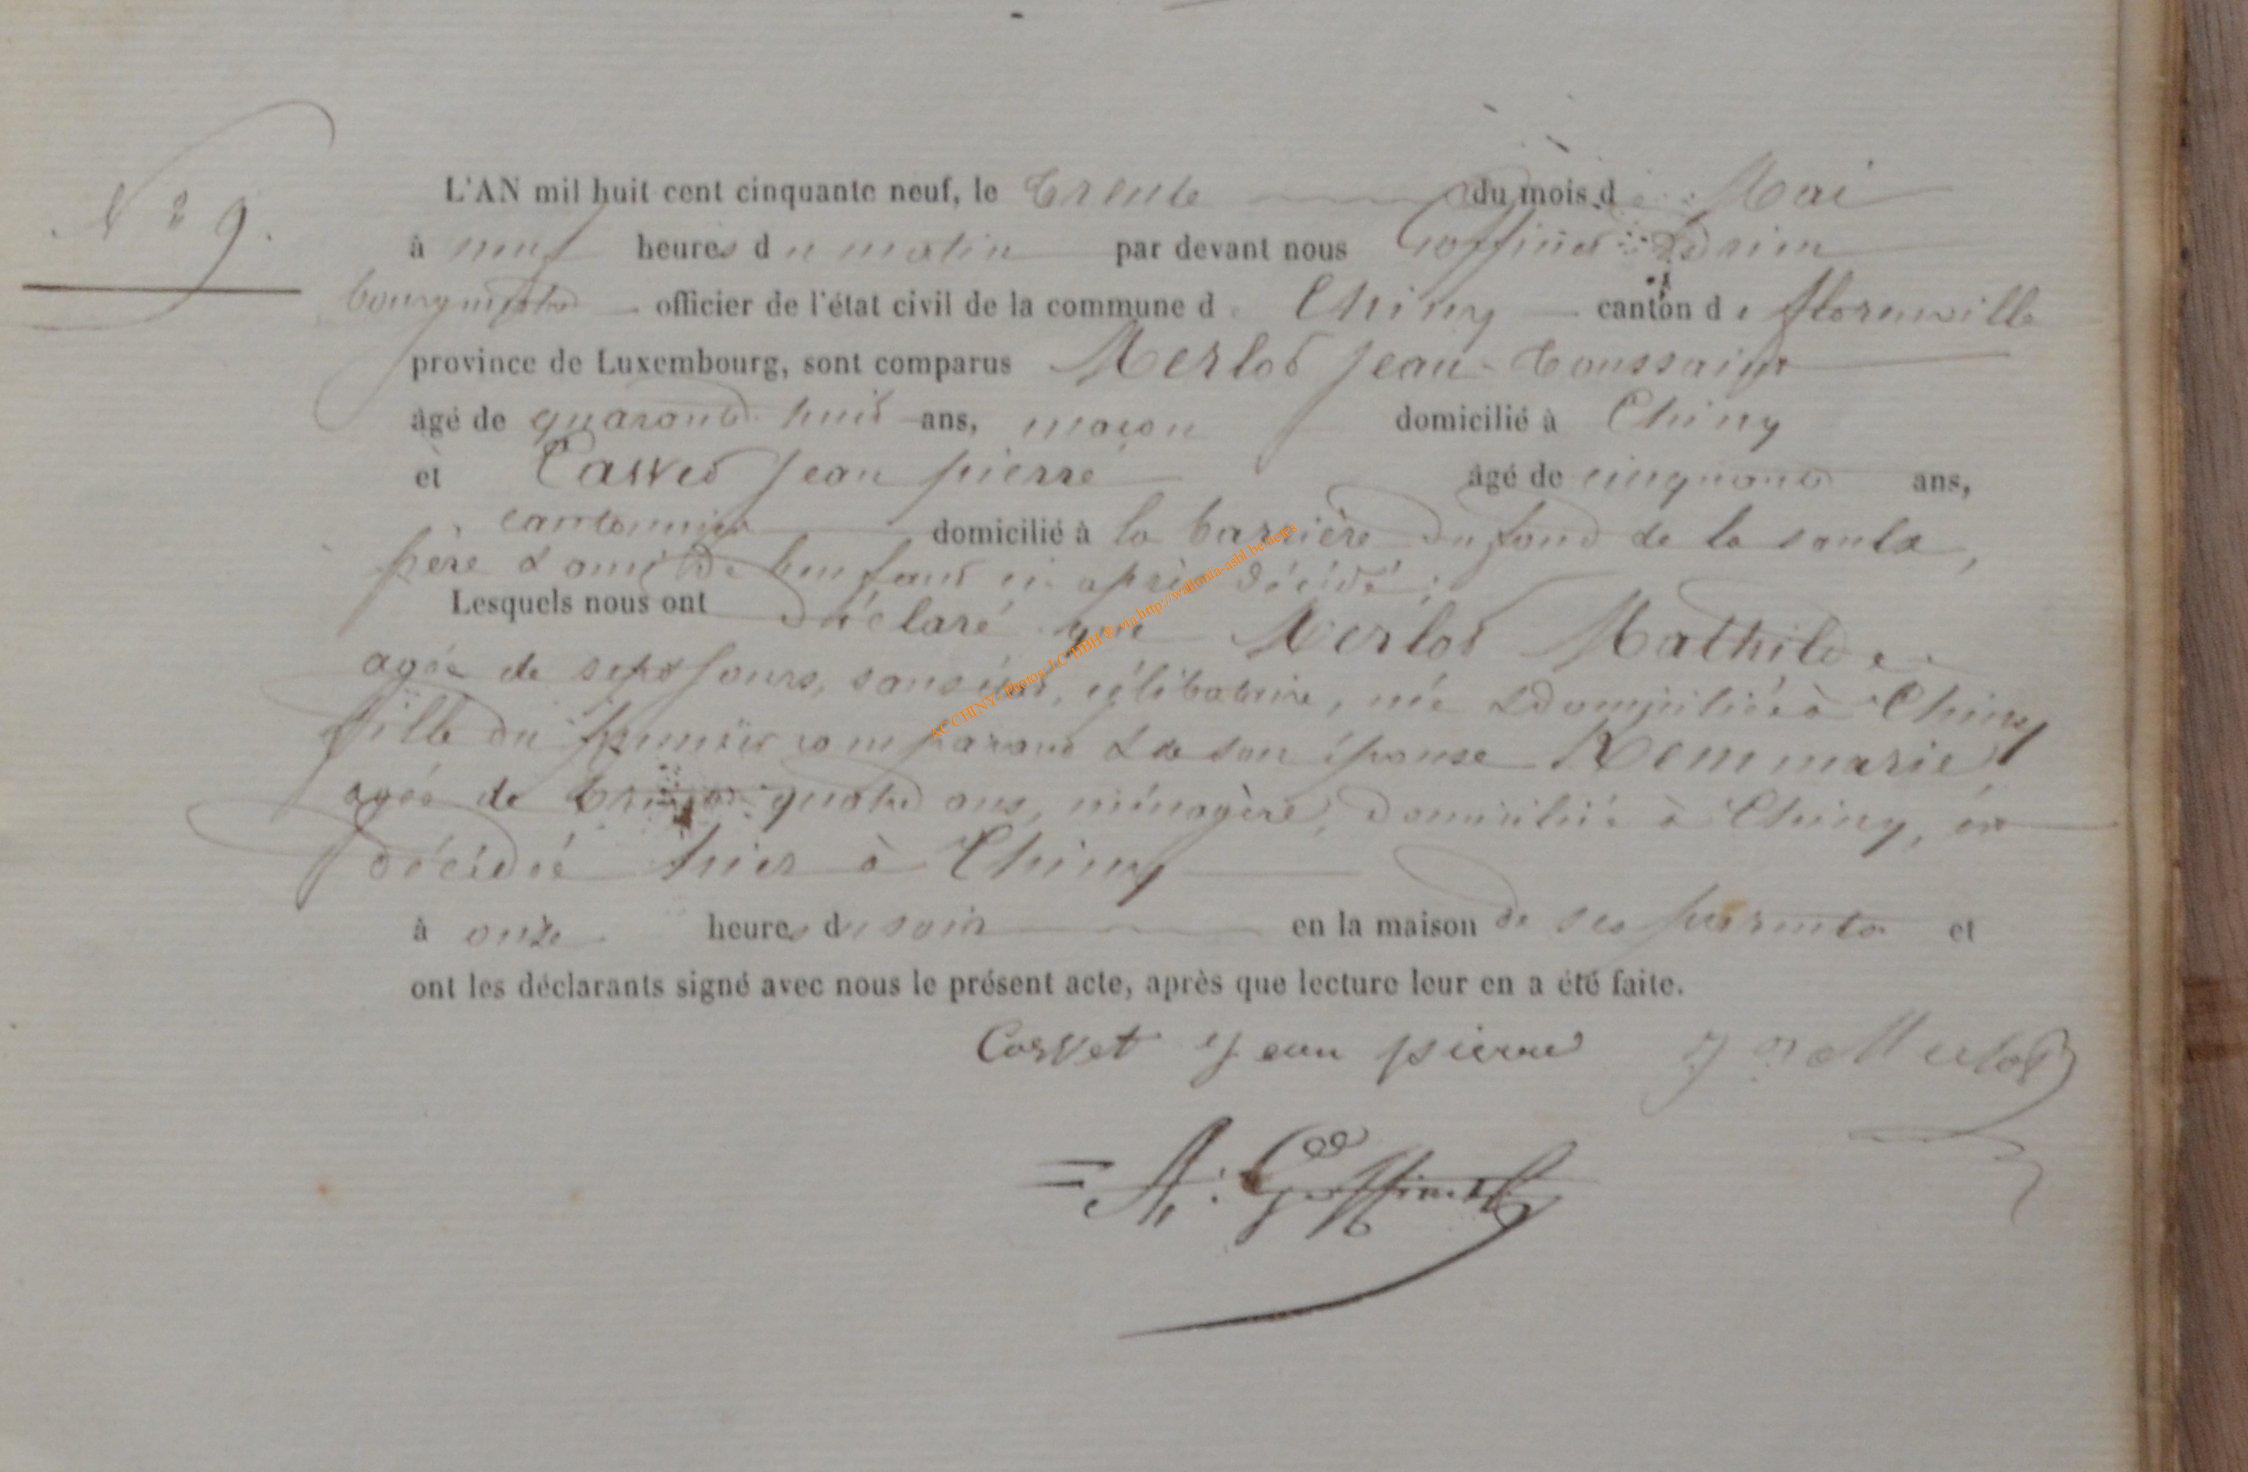 N° 9.
L'AN mil huit cent cinquante neuf, le trente du mois de Mai
à neuf heures du matin par devant nous Goffinet Adrien
bourgmestre officier de l'état civil de la commune de Chiny canton de florenville
province de Luxembourg, sont comparus Merlot Jean-toussaint
âgé de quarante huit ans, maçon domicilié à Chiny
et Casset Jean pierre âgé de cinquante ans,
cantonnier domicilié à la barrière du fond de la
père & ami de l'enfant ci-après décédé:
Lesquels nous ont déclaré que Merlot Mathilde
agée de sept jours, sans état, célibataire, née & domiciliée à Chiny
fille du premier comparant & de son épouse marie
agée de quatre ans, ménagère, domiciliée à Chiny, est
décédée hier à Chiny
à onze heures du soir en la maison de ses parents et
ont les déclarants signé avec nous le présent acte, après que lecture leur en a été faite.
Casset Jean pierre Merlot
A: Goffinet
AC CHINY - Photos J.C HBH ® via http://wallonia-asbl.be/